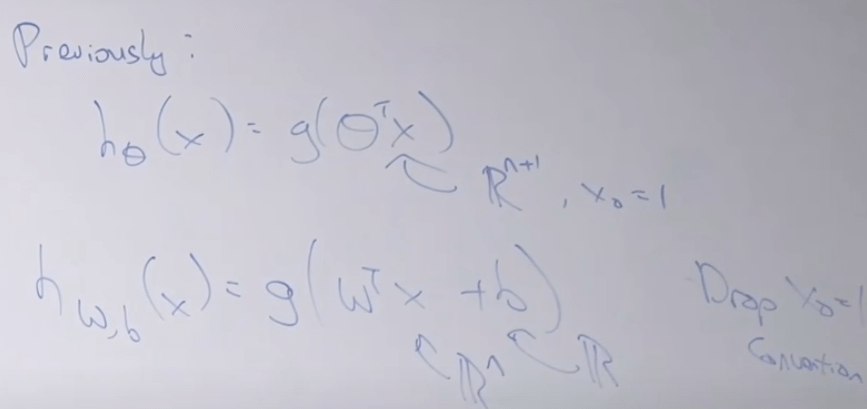 Previously:
h_θ(x) = g(θ^T x)
ℝ^{n+1}, x_0 = 1
h_{w,b}(x) = g(w^T x + b)
Drop x_0=1
Convention
ℝ^n ℝ